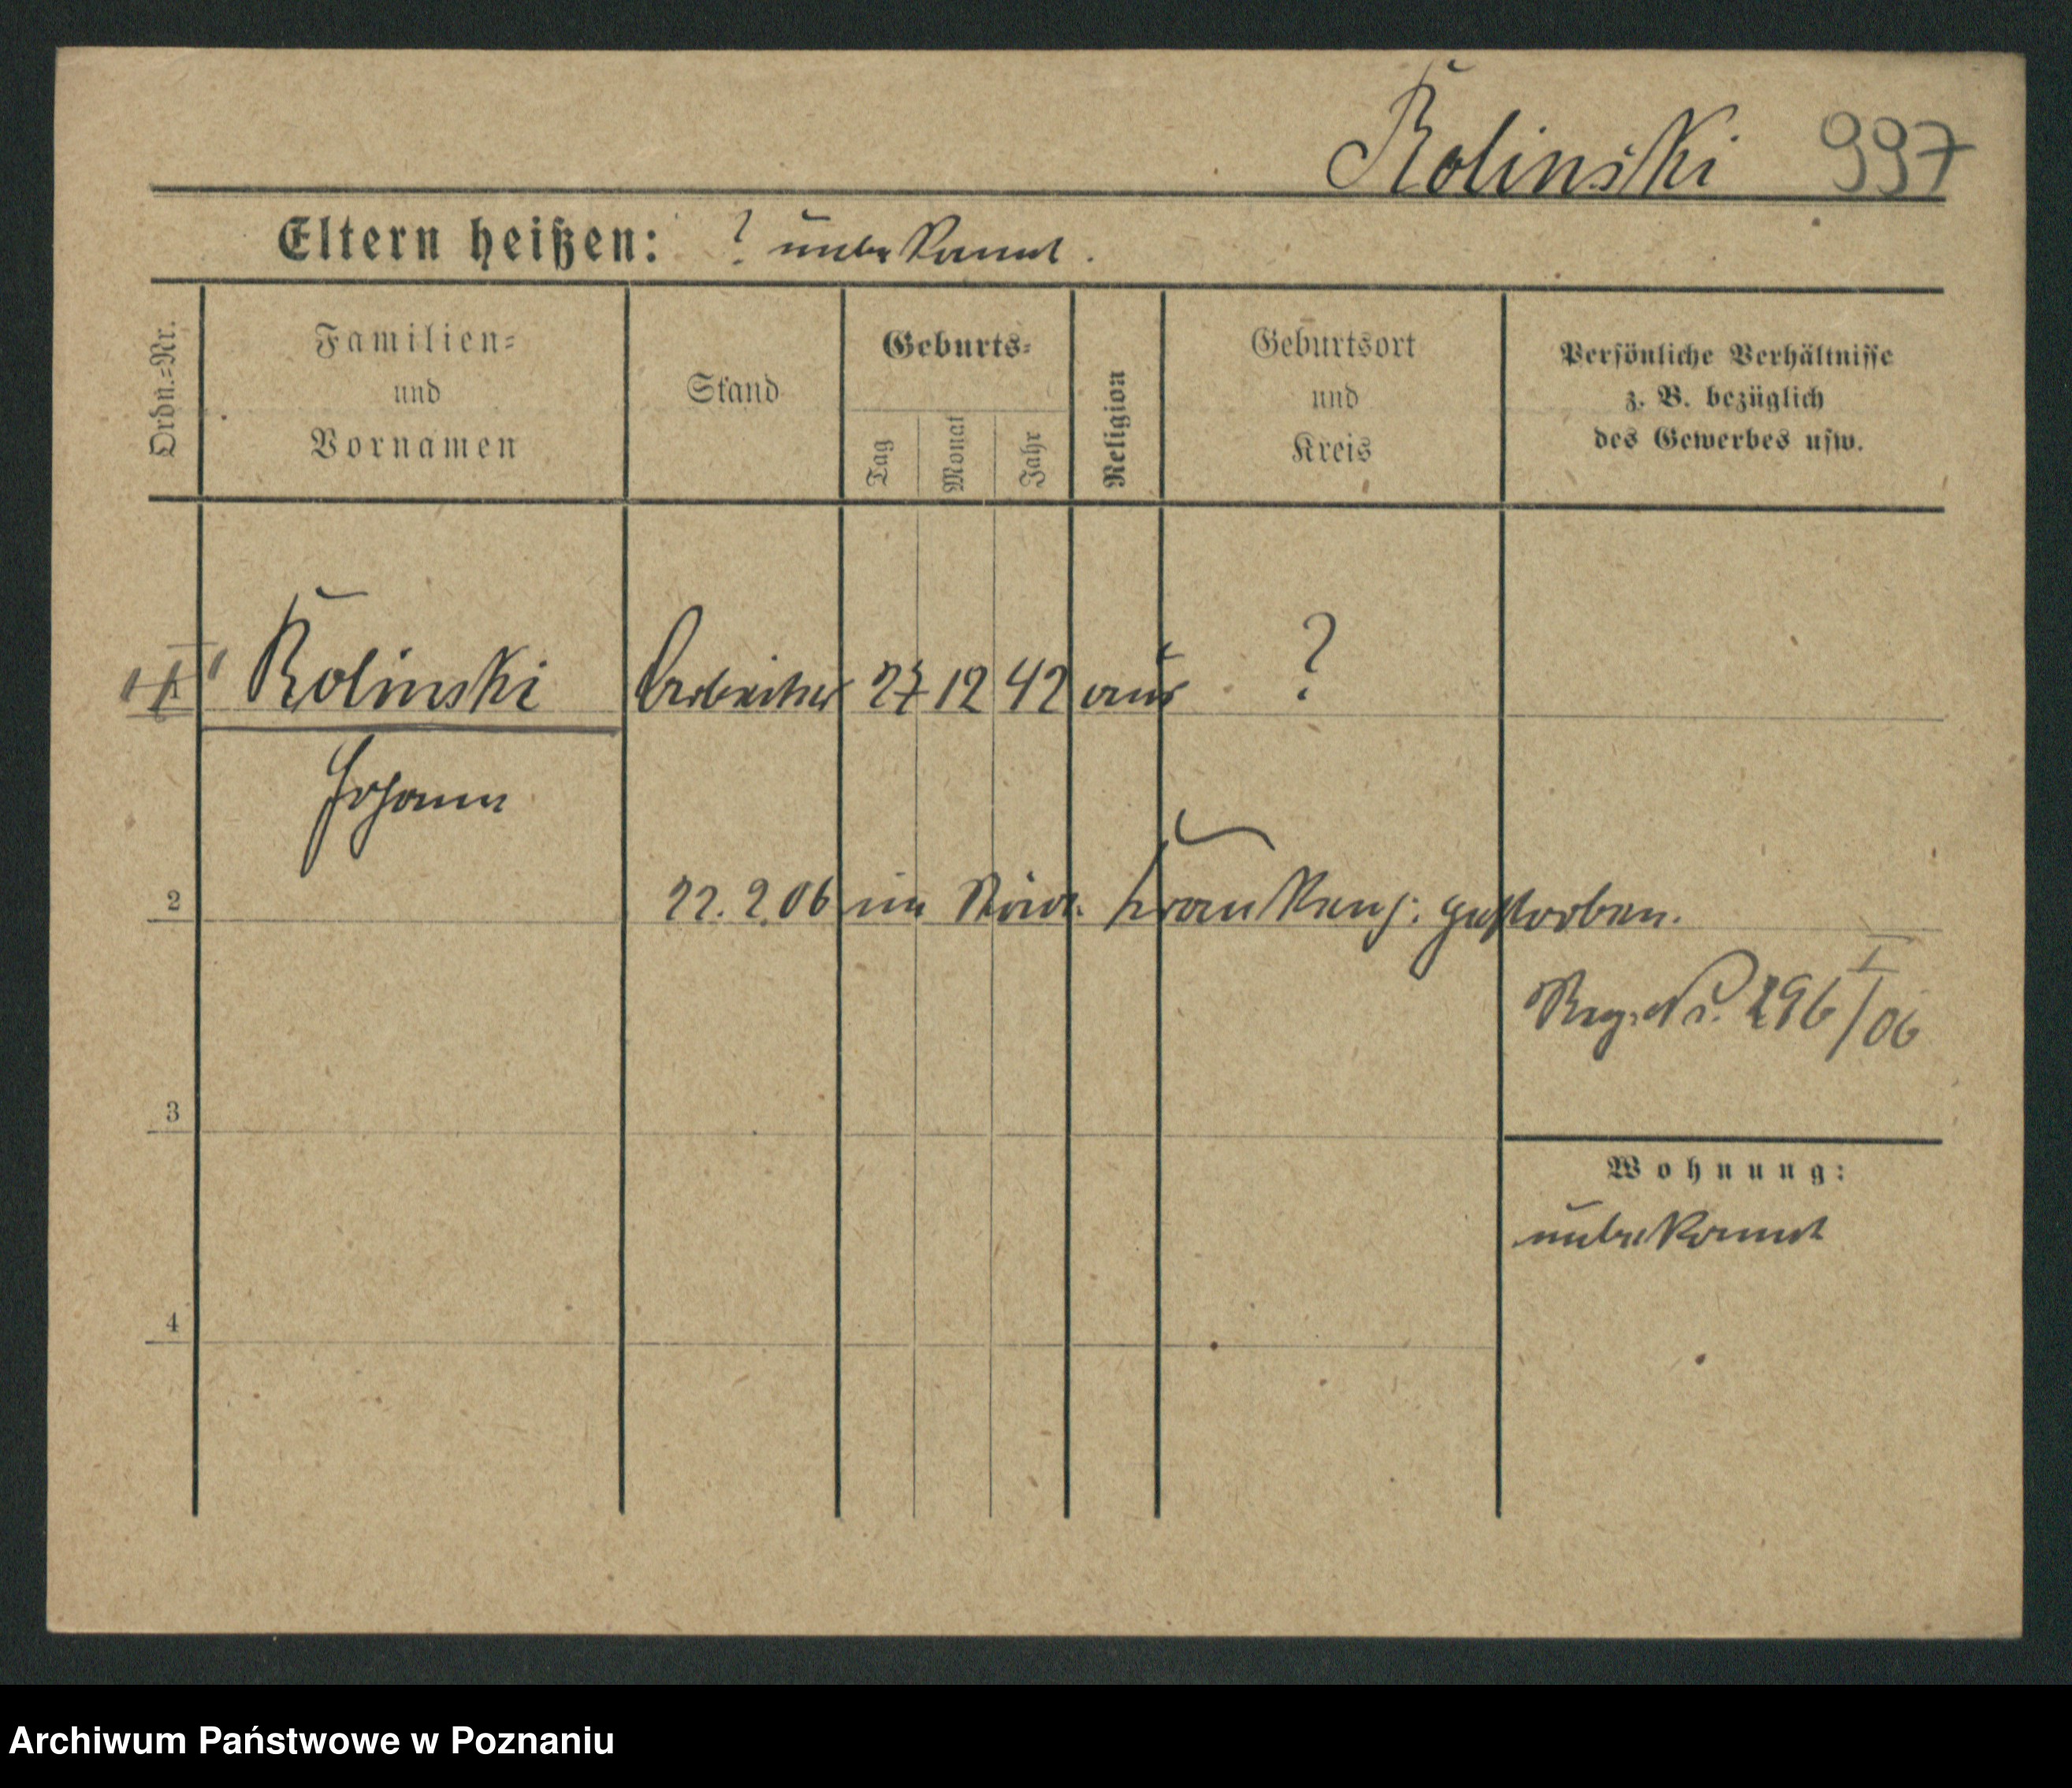 Kolinski 997
Eltern heißen: ? unbekannt.
Ordn.=Nr.
Familien=
und
Vornamen
Stand
Geburts=
Tag
Monat
Jahr
Religion
Geburtsort
und
Kreis
Persönliche Verhältnisse
z. B. bezüglich
des Gewerbes usw.
Kolinski Arbeiter 27 12 42 aus ?
Johann
2 22. 2. 06 im Krankenh. gestorben.
Reg. Nr. 296/06 I
3
Wohnung:
unbekannt
4
Archiwum Państwowe w Poznaniu